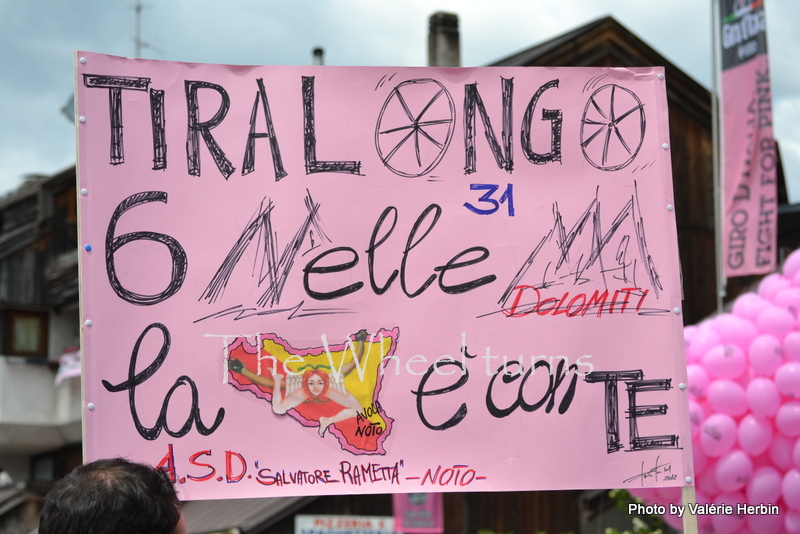 TIRALONGO
31
6 Nelle
DOLOMITI
The Wheel turns
la è con TE
AVOLA
NOTO
A.S.D. "SALVATORE RAMETTA" -NOTO-
GIRO D'ITALIA
FIGHT FOR PINK
PIZZERIA
Photo by Valérie Herbin